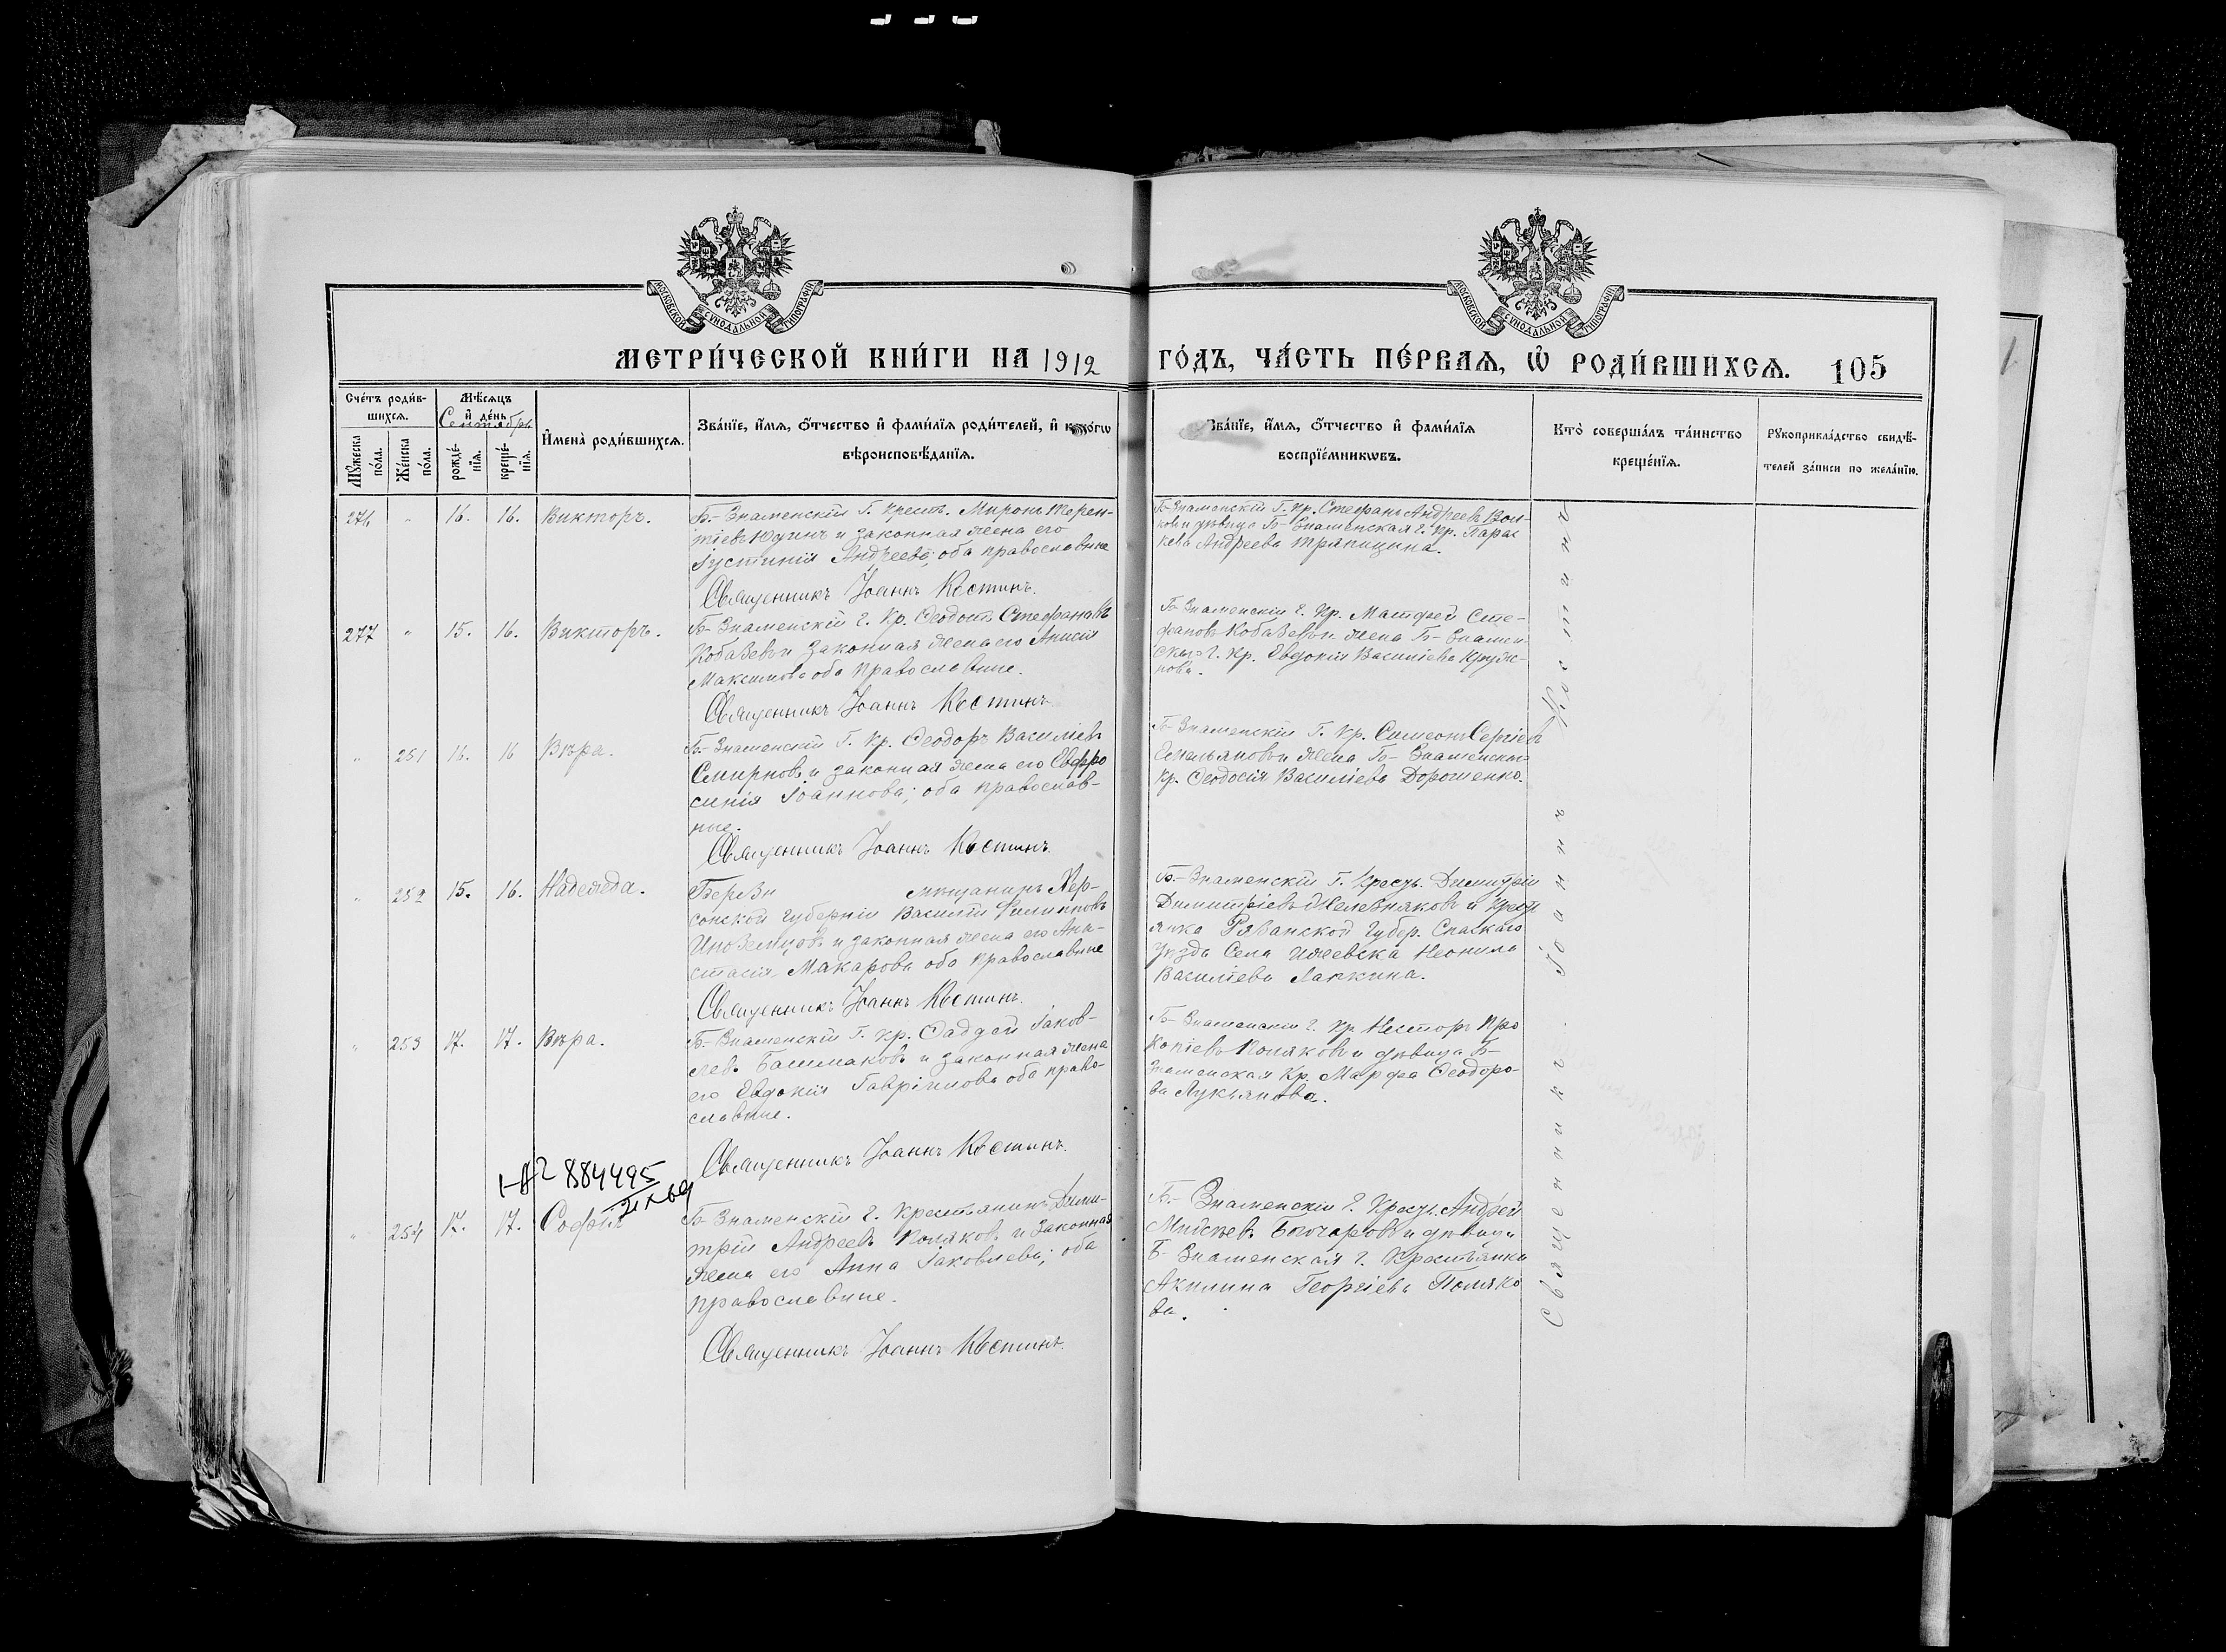 МОСКОВСКОЙ СУНОДАЛЬНОЙ ТИПОГРАФІИ
МОСКОВСКОЙ СУНОДАЛЬНОЙ ТИПОГРАФІИ
МЕТРИ́ЧЕСКОЙ КНИ́ГИ НА 1912 ГО́ДЪ, ЧА́СТЬ ПЕ́РВАѦ, Ѡ РОДИ́ВШИХСѦ. 105
Сче́тъ роди́вшихсѧ.
Мѣ́сѧцъ и де́нь
Сентябрь
Мꙋ́жеска по́ла.
Же́нска по́ла.
рожде́нїѧ.
креще́нїѧ.
И҆мена̀ роди́вшихсѧ.
Зва́нїе, и҆́мѧ, ѻ҆́тчество и҆ фами́лїѧ роди́телей, и҆
вѣроисповѣ́данїѧ.
Зва́нїе, и҆́мѧ, ѻ҆́тчество и҆ фами́лїѧ
воспрїе́мникѡвъ.
Кто̀ соверша́лъ та́инство
креще́нїѧ.
Рꙋкоприкла́дство свидѣ́-
телей за́писи по жела́нїю.
276 " 16. 16. Викторъ.
Б.-Знаменскій Г. крест. Миронъ Терен-
тіевъ Юдинъ и законная жена его
Іустинія Андреева; оба православные
Священникъ Іоаннъ Костинъ.
Б-Знаменскій Г. Кр. Стефанъ Андреевъ
и дѣвица Б-Знаменская г. Кр. Парас
кева Андреева Тряпицина.
277 " 15. 16. Викторъ.
Б-Знаменскій г. Кр. Ѳеодотъ Стефановъ
Кобазевъ и законная жена его Анисія
Максимова оба Православные.
Священникъ Іоаннъ Костинъ
Б-Знаменскій г. Кр. Матфей Сте-
фановъ Кобазевъ и жена Б-Знамен
скаго г. Кр. Евдокія Василіева
" 251 16. 16 Вѣра.
Б-Знаменскій Г. Кр. Ѳеодоръ Василіевъ
Смирновъ и законная жена его Евфро
синія Іоаннова; оба православ-
ные.
Священникъ Іоаннъ Костинъ.
Б-Знаменскій Г. Кр. Симеонъ Сергіевъ
Емельяновъ и жена Б-Знаменскаго
Кр. Ѳеодосія Василіева Дорошенко.
" 252 15. 16. Надежда.
Березн мѣщанинъ Хер-
сонской Губерніи Василій Филипповъ
Иноземцовъ и законная жена его Ана-
стасія Макарова оба православные
Священникъ Іоаннъ Костинъ.
Б-Знаменскій Г. Крест. Димитрій
Димитріевъ Железняковъ и Крест
янка Рязанской Губер. Спаскаго
Уезда Села Ижевска Неонила
Василіева Лапкина.
" 253 17. 17. Вѣра.
Б-Знаменскій Г. Кр. Фаддей Іаков-
левъ Башмаковъ и законная жена
его Евдокія Гавріилова оба право-
славные.
Священникъ Іоаннъ Костинъ.
Б-Знаменскій г. Кр Несторъ Про
копіевъ Поляковъ и дѣвица Б-
Знаменская Кр. Марфа Ѳеодоро-
ва Лукьянова.
884495
" 254 17. 17. Софія
Б-Знаменскій г. Крестьянинъ Дими-
трій Андреевъ Поляковъ и Законная
жена его Анна Іаковлева; оба
православные.
Священникъ Іоаннъ Костинъ.
Б-Знаменскій г. Крест. Андрей
Бочаровъ и дѣвица
Б-Знаменская г. Крестьянка
Акилина Георгіева Поляко
ва.
Священникъ Іоаннъ Костинъ